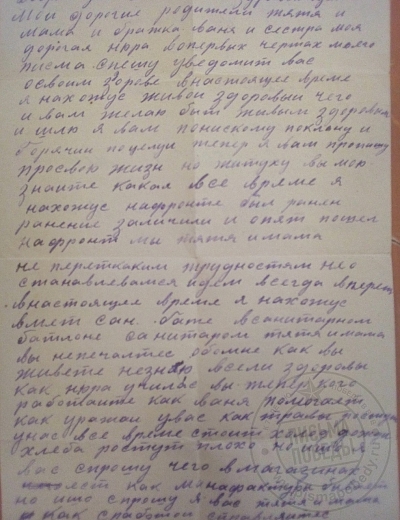 Мои дорогие родители тятя и
мама и братка ваня и сестра моя
дорогая нюра вопервых чертах моего
писма спешу уведомит вас
освоим здорове внастоящее време
я нахожус живои здоровыи чего
и вам желаю быт живым здоровым
и шлю я вам понискому поклону и
горячии поцелуи тепер я вам пропишу
просвою жизн но житуху вы мою
знаите какая все време я
нахожус нафронте был ранен
ранение заличили и опят пошел
нафронт мы тятя и мама
не перет какими трудностями нео
станавлеваемся идем всегда вперет
внастоящее време я нахожус
вмет сан бате всанитарном
батлоне санитаром тятя и мама
вы непечалтес обомне как вы
живете незнаю всели здоровы
как нюра училас вы тепер кого
работаите как ваня помогает
как урожаи увас как травы
унас все време стоит
хлеба ростут плохо но ишо я
вас спрошу чего вмагазинах
ест как манафактура бывает
но ишо спрошу я вас тятя и мама
как сработои справляетес
ПИСЬМА
ПОБЕДЫ